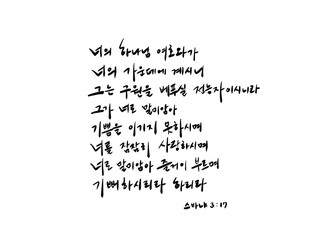 너의 하나님 여호와가
너의 가운데에 계시니
그는 구원을 베푸실 전능자이시니라
그가 너로 말미암아
기쁨을 이기지 못하시며
너를 잠잠히 사랑하시며
너로 말미암아 즐거이 부르며
기뻐하시리라 하리라
스바냐 3:17